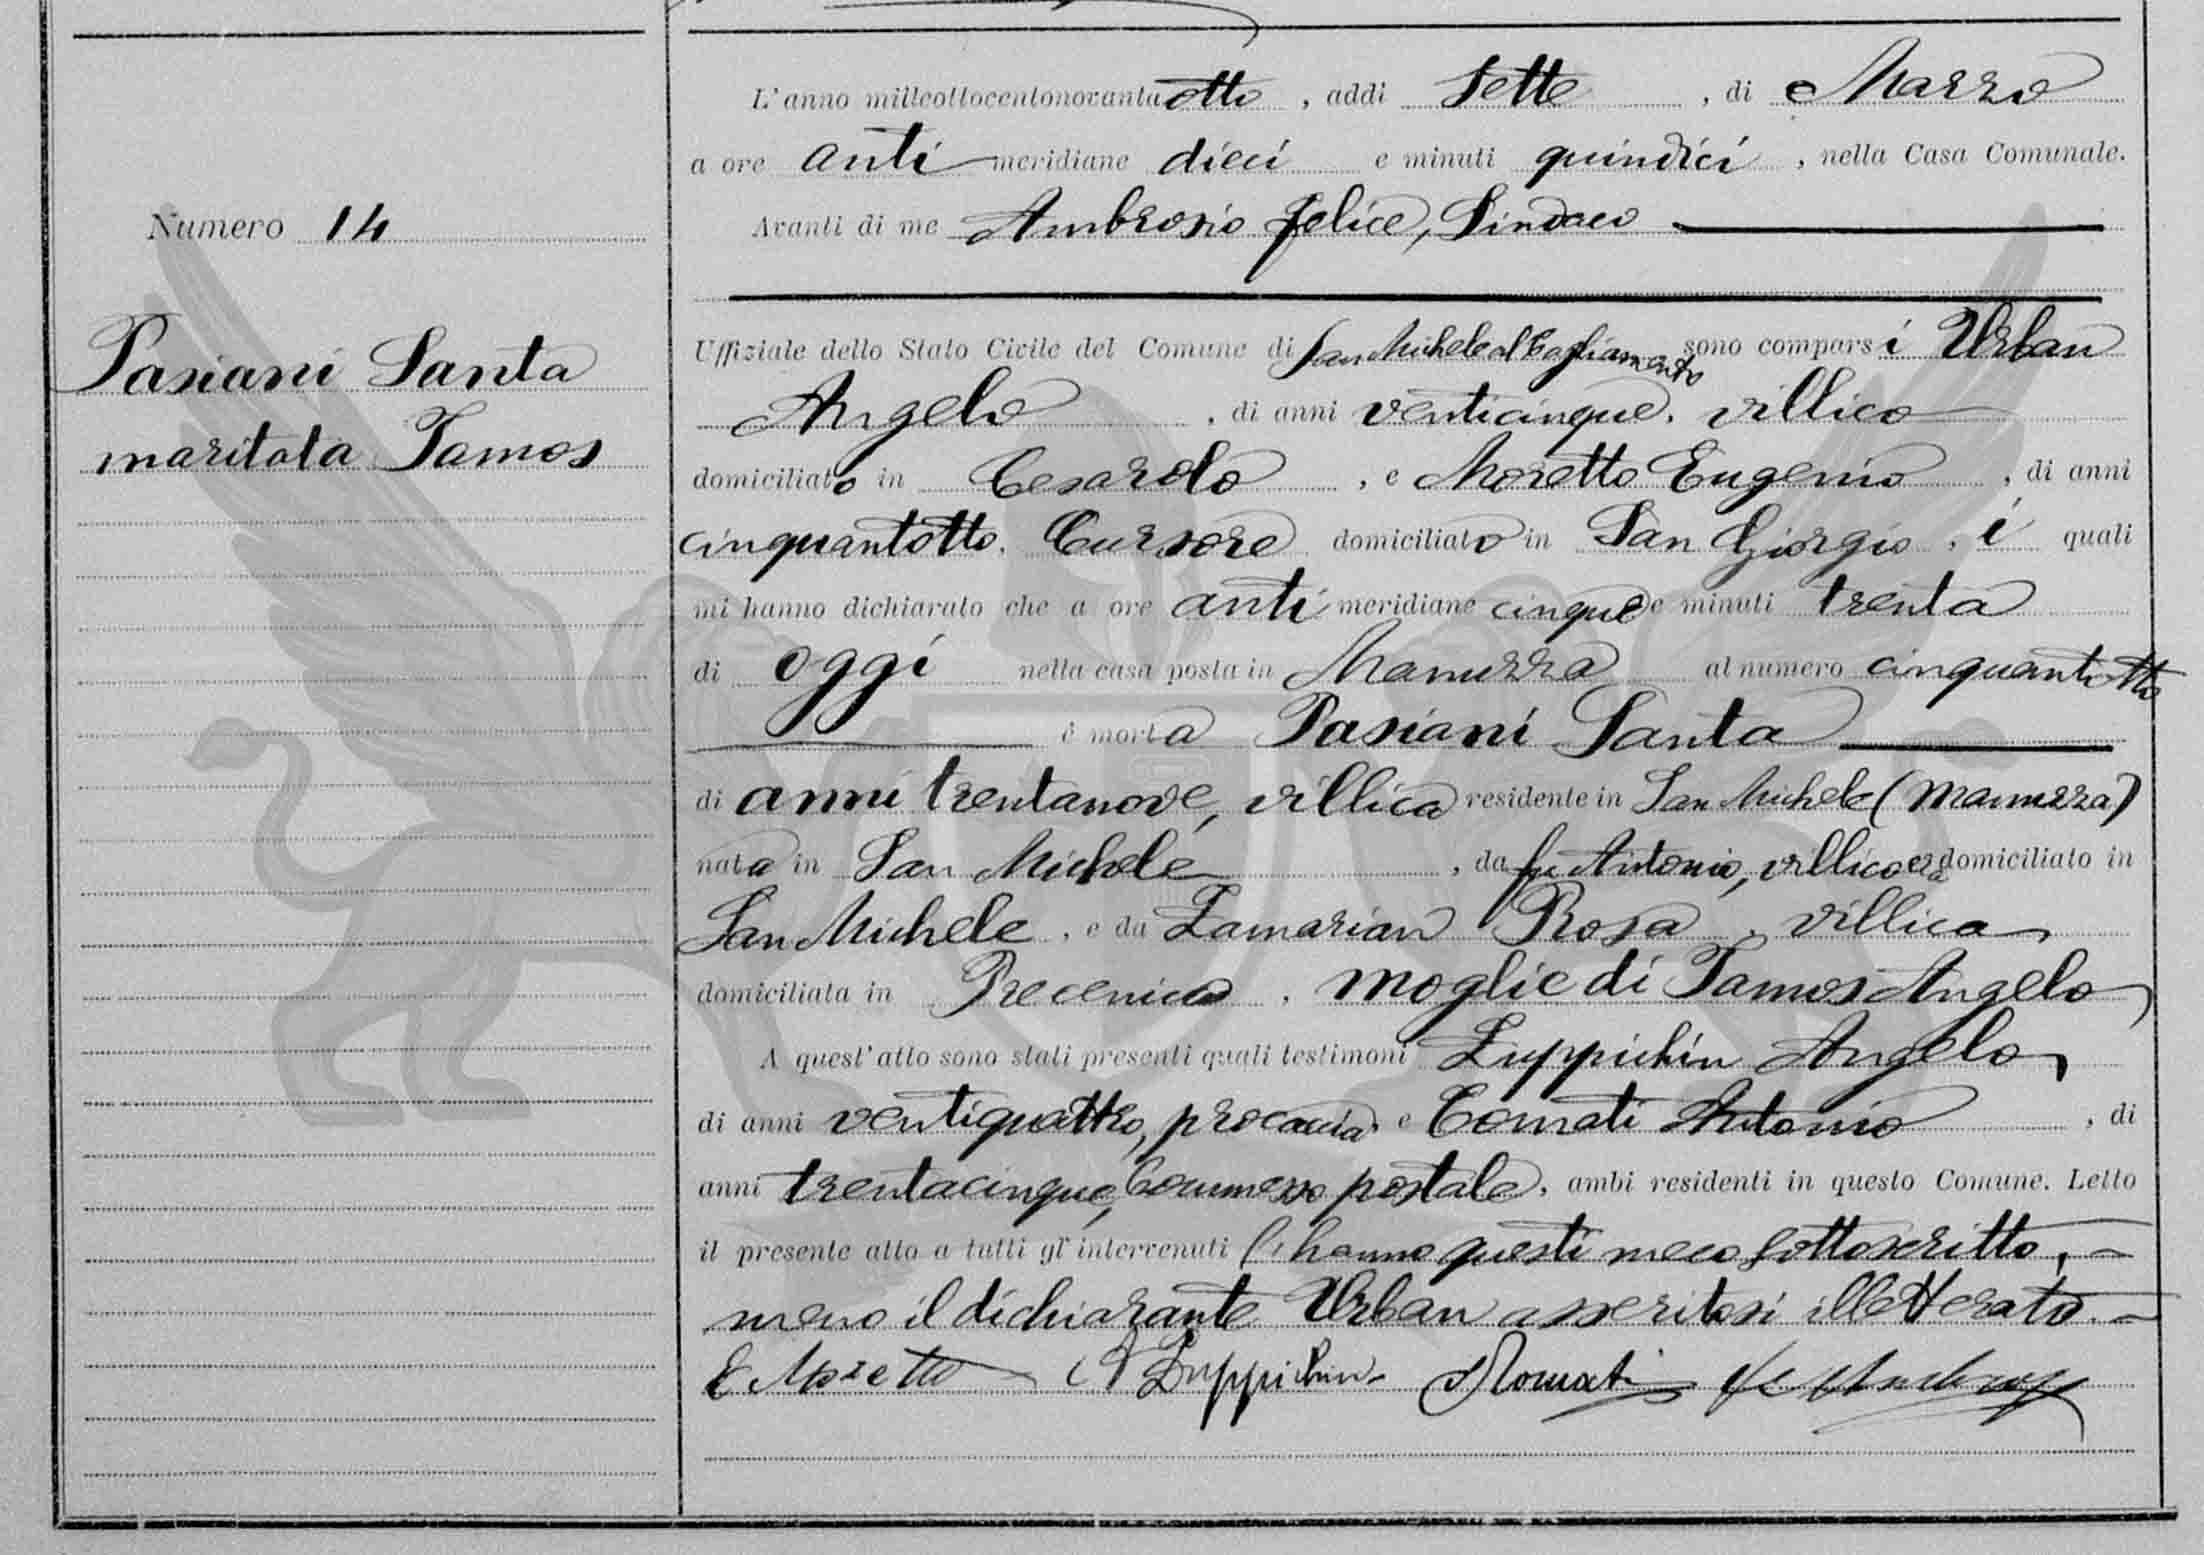 Numero 14
Pasiani Santa
maritata Tamos
L'anno milleottocentonovantaotto, addi Sette, di Marzo
a ore antimeridiane dieci e minuti quindici, nella Casa Comunale.
Avanti di me Ambrosio Felice, Sindaco
Uffiziale dello Stato Civile del Comune di San Michele al Tagliamento sono comparsi Urban
Angelo, di anni venticinque, villico
domiciliato in Cesarolo, e Moretto Eugenio, di anni
cinquantotto, Cursore domiciliato in San Giorgio, i quali
mi hanno dichiarato che a ore antimeridiane cinque e minuti trenta
di oggi nella casa posta in Manuzza al numero cinquantotto
è morta Pasiani Santa
di anni trentanove, villica residente in San Michele (Manuzza)
nata in San Michele, da fu Antonio, villico era domiciliato in
San Michele, e da Zamarian Rosa, villica
domiciliata in Precenico, moglie di Tamos Angelo
A quest'atto sono stati presenti quali testimoni Zuppichin Angelo
di anni ventiquattro, procaccia, e Comati Antonio, di
anni trentacinque, Commesso postale, ambi residenti in questo Comune. Letto
il presente atto a tutti gl'intervenuti l'hanno questi meco sottoscritto,
meno il dichiarante Urban asseritosi illetterato.
E Moretto A Zuppichin